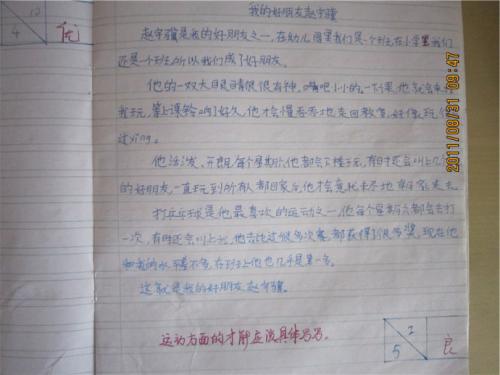 我的好朋友赵宇骥
赵宇骥是我的好朋友之一,在幼儿园里我们是一个班,在小学里我们
还是一个班,所以我们成了好朋友。
他的一双大眼睛很有神,嘴吧小小的。一下课,他就会来
我玩,上课铃响了好久,他才会慢吞吞地走回教室,好像玩
过ying。
他活发、开朗,每个星期六他都会下楼玩,有时还会叫上几个
的好朋友,一直玩到所有人都回家后,他才意犹未尽地家走去
打乒乓球是他最喜欢的运动之一,他每个星期六都会去打
一次,有时还会叫上我,他去比过很多次赛,都获得了很多奖,现在他
和我的水平差不多,在班上他也几乎是第一名。
这就是我的好朋友赵宇骥。
运动方面的才能应该具体写写。
12
4
优
2
5
良
2011/08/31 09:47